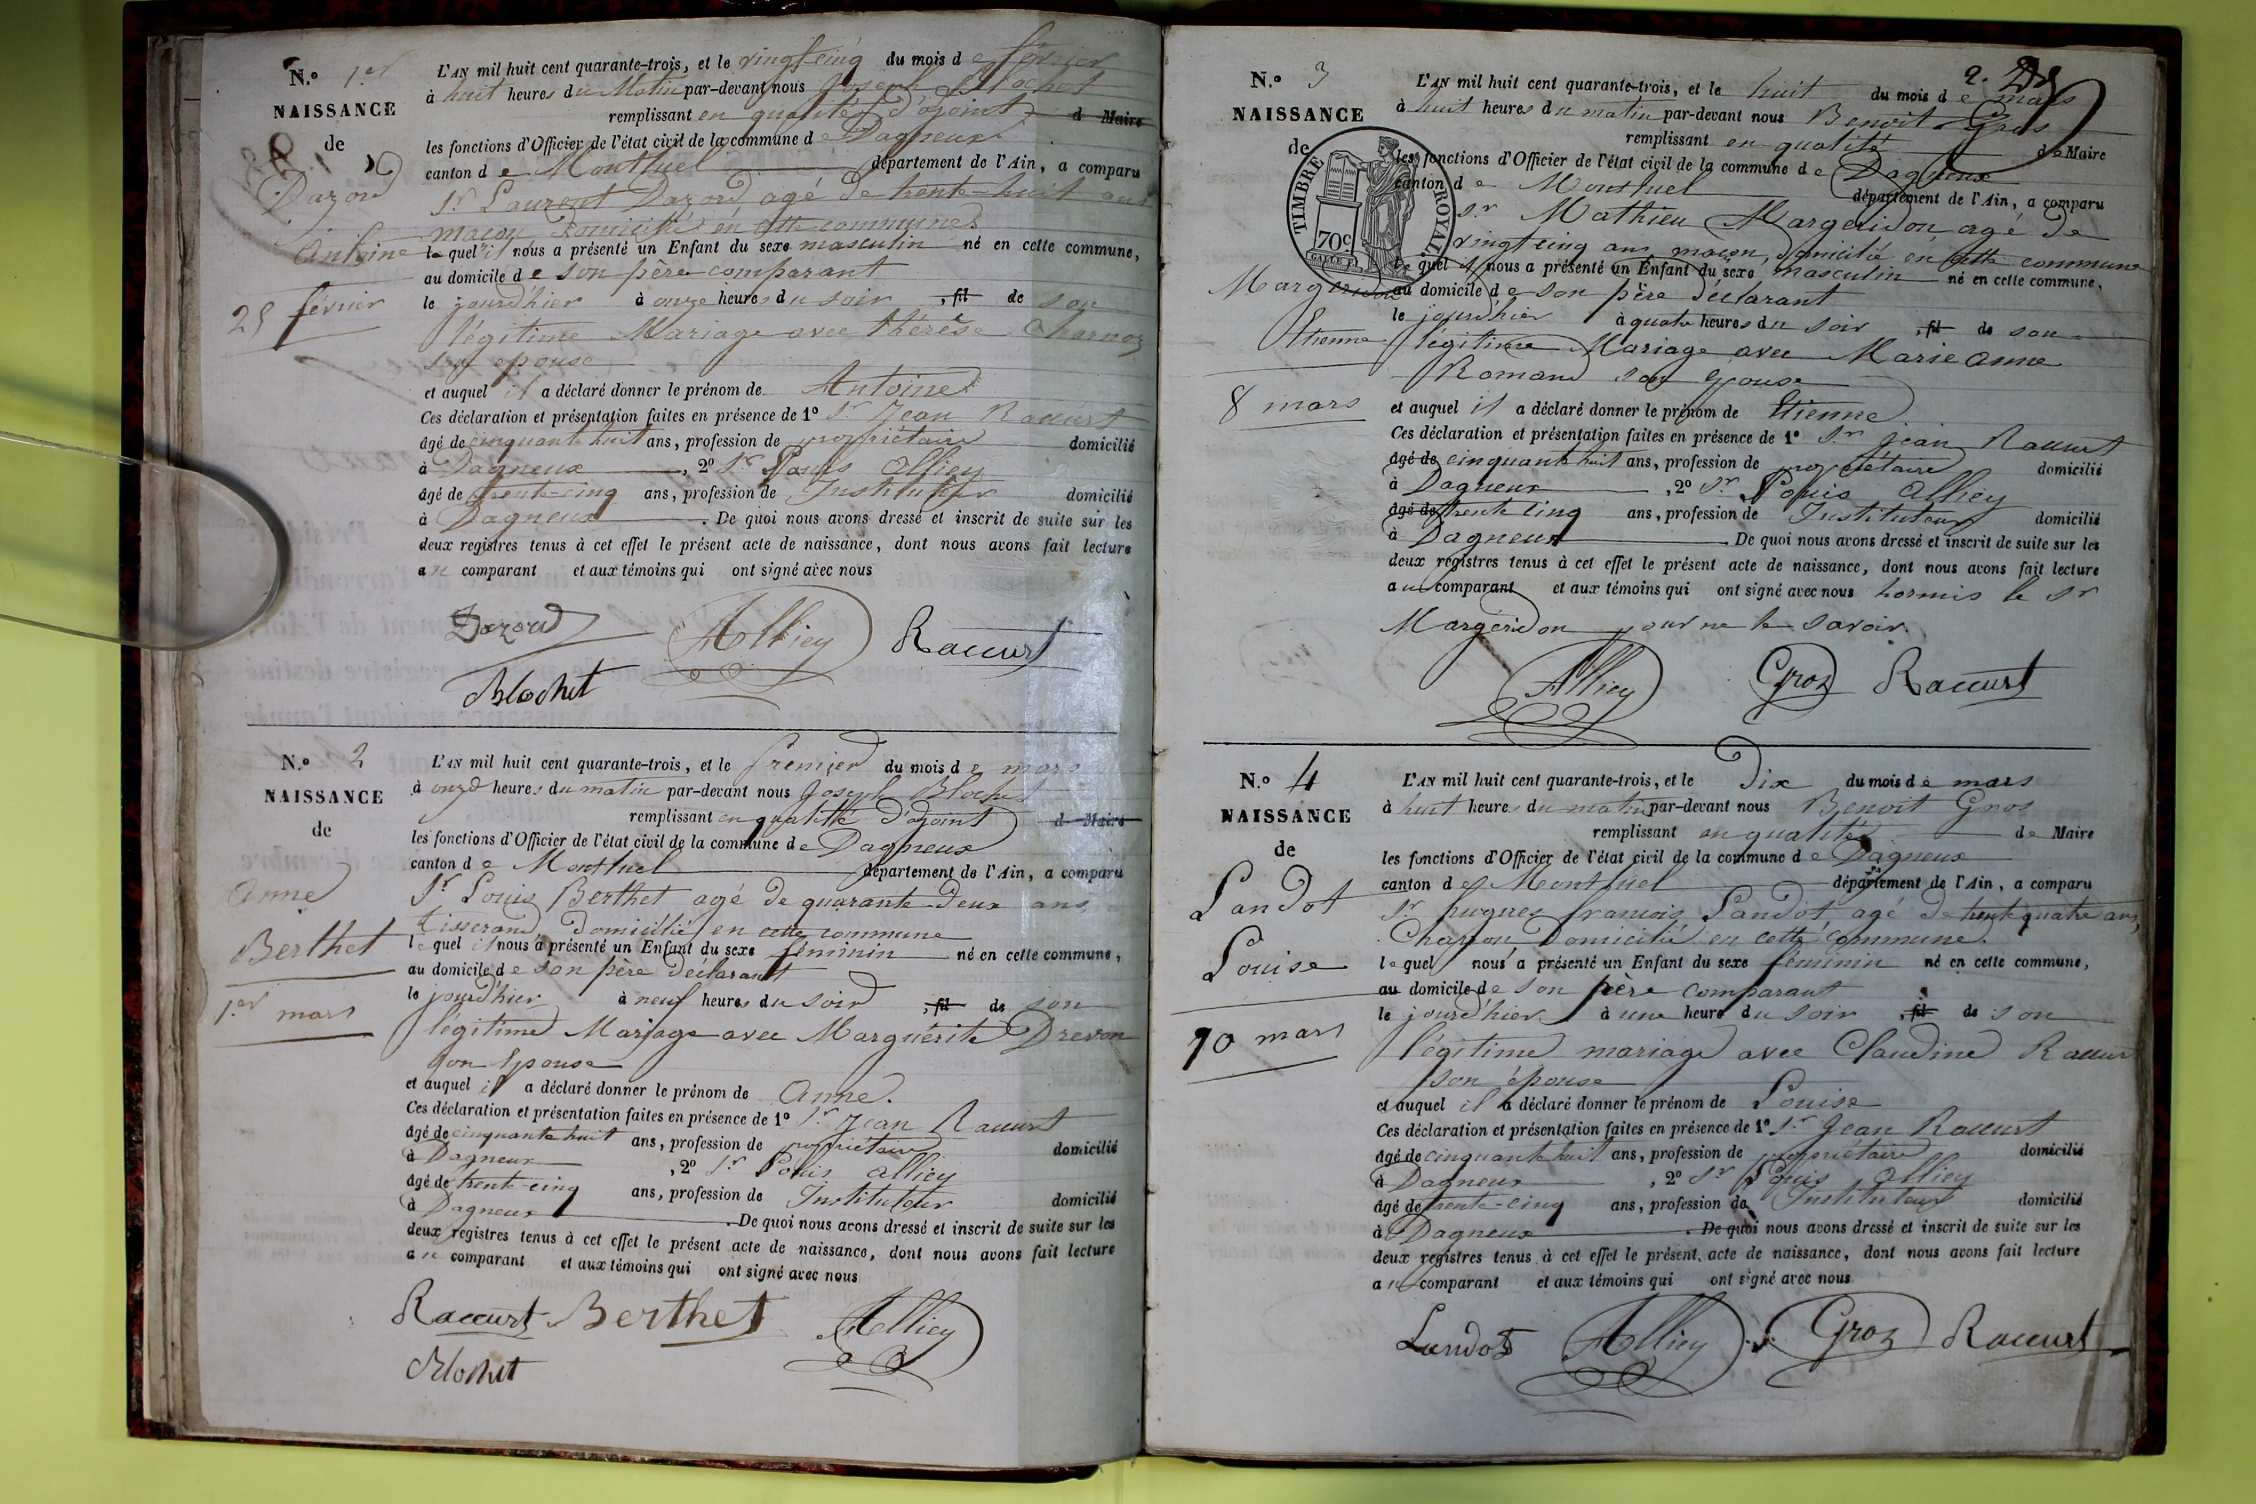 N.º 1er
NAISSANCE
de
Dazord
Antoine
25 février
L'AN mil huit cent quarante-trois, et le vingt cinq du mois de février
à huit heures du Matin par-devant nous Joseph Blochet
remplissant en qualité d'ajoint d Maire
les fonctions d'Officier de l'état civil de la commune de Dagneux
canton de Montluel département de l'Ain, a comparu
Sr Laurent Dazord agé de trente-huit ans
maçon, domicilié en cette commune
lequel il nous a présenté un Enfant du sexe masculin né en cette commune,
au domicile de son père comparant
le jourd'hier à onze heures du soir, fil de son
légitime Mariage avec thérèse Charnoz
son epouse
et auquel il a déclaré donner le prénom de Antoine
Ces déclaration et présentation faites en présence de 1º Sr Jean Raccurt
âgé de cinquante huit ans, profession de propriétaire domicilié
à Dagneux, 2º Sr Louis Alliey
âgé de trente-cinq ans, profession de Instituteur domicilié
à Dagneux. De quoi nous avons dressé et inscrit de suite sur les
deux registres tenus à cet effet le présent acte de naissance, dont nous avons fait lecture
au comparant et aux témoins qui ont signé avec nous
Dazord Alliey Raccurt
Blochet
N.º 2
NAISSANCE
de
Anne
Berthet
1.er mars
L'AN mil huit cent quarante-trois, et le premier du mois de mars
à onze heures du matin par-devant nous Joseph Blochet
remplissant en qualité d'ajoint d Maire
les fonctions d'Officier de l'état civil de la commune de Dagneux
canton de Montluel département de l'Ain, a comparu
Sr Louis Berthet agé de quarante-deux ans
tisserand, domicilié en cette commune
lequel il nous a présenté un Enfant du sexe féminin né en cette commune,
au domicile de son père déclarant
le jourd'hier à neuf heures du soir, fil de son
légitime Mariage avec Marguérite Drevon
son Epouse
et auquel il a déclaré donner le prénom de Anne.
Ces déclaration et présentation faites en présence de 1º Sr Jean Raccurt
âgé de cinquante huit ans, profession de propriétaire domicilié
à Dagneux, 2º Sr Louis Alliey
âgé de trente-cinq ans, profession de Instituteur domicilié
à Dagneux. De quoi nous avons dressé et inscrit de suite sur les
deux registres tenus à cet effet le présent acte de naissance, dont nous avons fait lecture
au comparant et aux témoins qui ont signé avec nous
Raccurt Berthet Alliey
Blochet
2.
N.º 3
NAISSANCE
de
TIMBRE ROYAL
70c
GALLE F.
Margeridon
Etienne
8 mars
L'AN mil huit cent quarante-trois, et le huit du mois de mars
à huit heures du matin par-devant nous Benoit Gros
remplissant en qualité de Maire
les fonctions d'Officier de l'état civil de la commune de Dagneux
canton de Montluel département de l'Ain, a comparu
Sr Mathieu Margeridon agé de
vingt cinq ans, maçon, domicilié en cette commune
lequel il nous a présenté un Enfant du sexe masculin né en cette commune,
au domicile de son père déclarant
le jourd'hier à quatre heures du soir, fil de son
légitime Mariage avec Marie Anne
Romand son Epouse
et auquel il a déclaré donner le prénom de Etienne
Ces déclaration et présentation faites en présence de 1º Sr Jean Raccurt
âgé de cinquante huit ans, profession de propriétaire domicilié
à Dagneux, 2º Sr Louis Alliey
âgé de trente cinq ans, profession de Instituteur domicilié
à Dagneux. De quoi nous avons dressé et inscrit de suite sur les
deux registres tenus à cet effet le présent acte de naissance, dont nous avons fait lecture
au comparant et aux témoins qui ont signé avec nous hormis le Sr
Margeridon pour ne le savoir.
Alliey Groz Raccurt
N.º 4
NAISSANCE
de
Landot
Louise
10 mars
L'AN mil huit cent quarante-trois, et le Dix du mois de mars
à huit heures du matin par-devant nous Benoit Gros
remplissant en qualité de Maire
les fonctions d'Officier de l'état civil de la commune de Dagneux
canton de Montluel département de l'Ain, a comparu
Sr hugues francois Landot, agé de trente quatre ans,
Charron, domicilié en cette commune.
lequel nous a présenté un Enfant du sexe féminin né en cette commune,
au domicile de son père comparant
le jourd'hier à une heure du soir, fil de son
légitime mariage avec Claudine Raccur
son épouse
et auquel il a déclaré donner le prénom de Louise
Ces déclaration et présentation faites en présence de 1º Sr Jean Raccurt
âgé de cinquante huit ans, profession de propriétaire domicilié
à Dagneux, 2º Sr Louis Alliey
âgé de trente-cinq ans, profession de Instituteur domicilié
à Dagneux. De quoi nous avons dressé et inscrit de suite sur les
deux registres tenus à cet effet le présent acte de naissance, dont nous avons fait lecture
au comparant et aux témoins qui ont signé avec nous
Landot Alliey Groz Raccurt